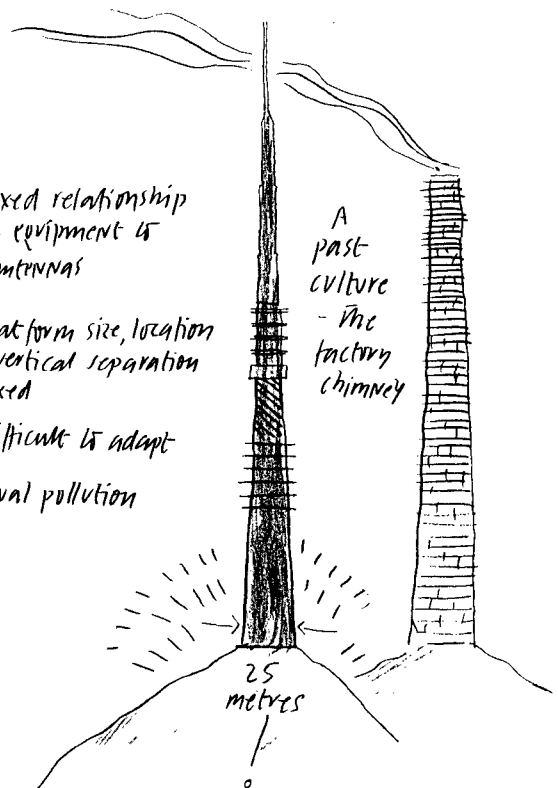 xed relationship
equipment to
antennas
atform size, location
vertical separation
xed
fficult to adapt
ual pollution
A
past
culture
- The
factory
chimney
25
metres